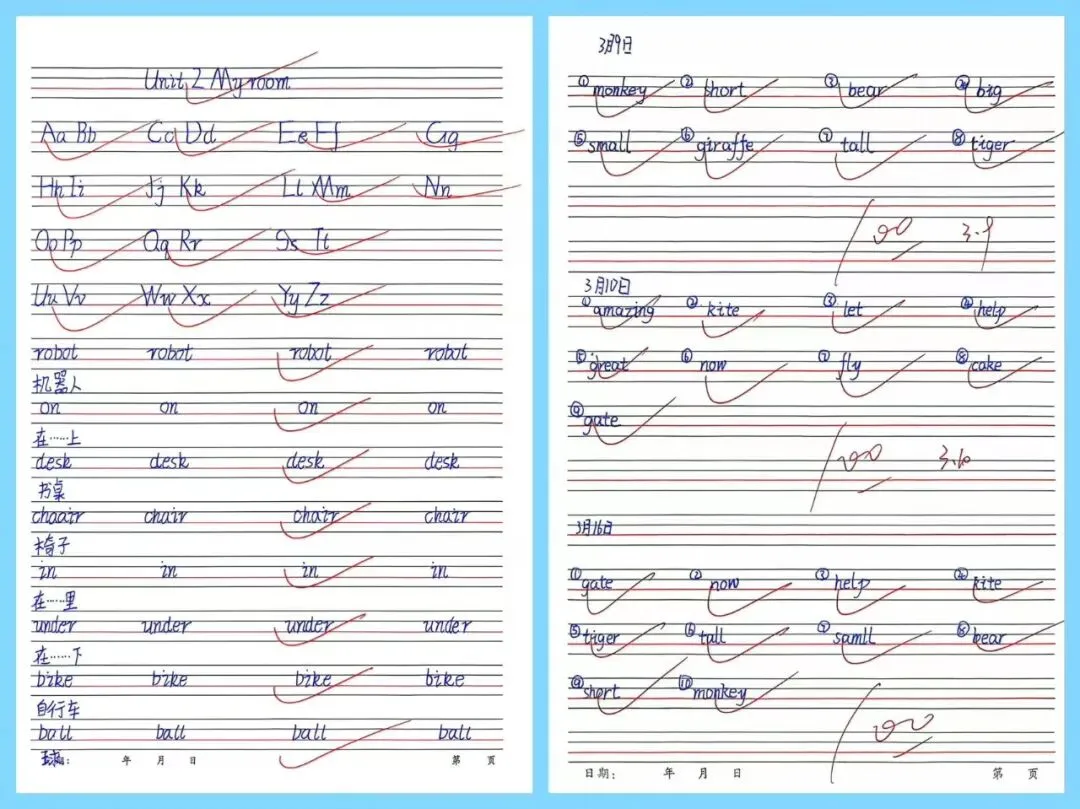 Unit 2 My room
Aa Bb Cc Dd Ee Ff Gg
Hh Ii Jj Kk Ll Mm Nn
Oo Pp Qq Rr Ss Tt
Uu Vv Ww Xx Yy Zz
robot robot robot robot
机器人
on on on on
在……上
desk desk desk desk
书桌
choair chair chair chair
椅子
in in in in
在……里
under under under under
在……下
bike bike bike bike
自行车
ball ball ball ball
球: 年 月 日 第 页
3月9日
①monkey ②short ③bear ④big
⑤small ⑥giraffe ⑦tall ⑧tiger
100 3.9
3月10日
①amazing ②kite ③let ④help
⑤great ⑥now ⑦fly ⑧cake
⑨gate
100 3.10
3月16日
①gate ②now ③help ④kite
⑤tiger ⑥tall ⑦samll ⑧bear
⑨short ⑩monkey
100
日期: 年 月 日 第 页